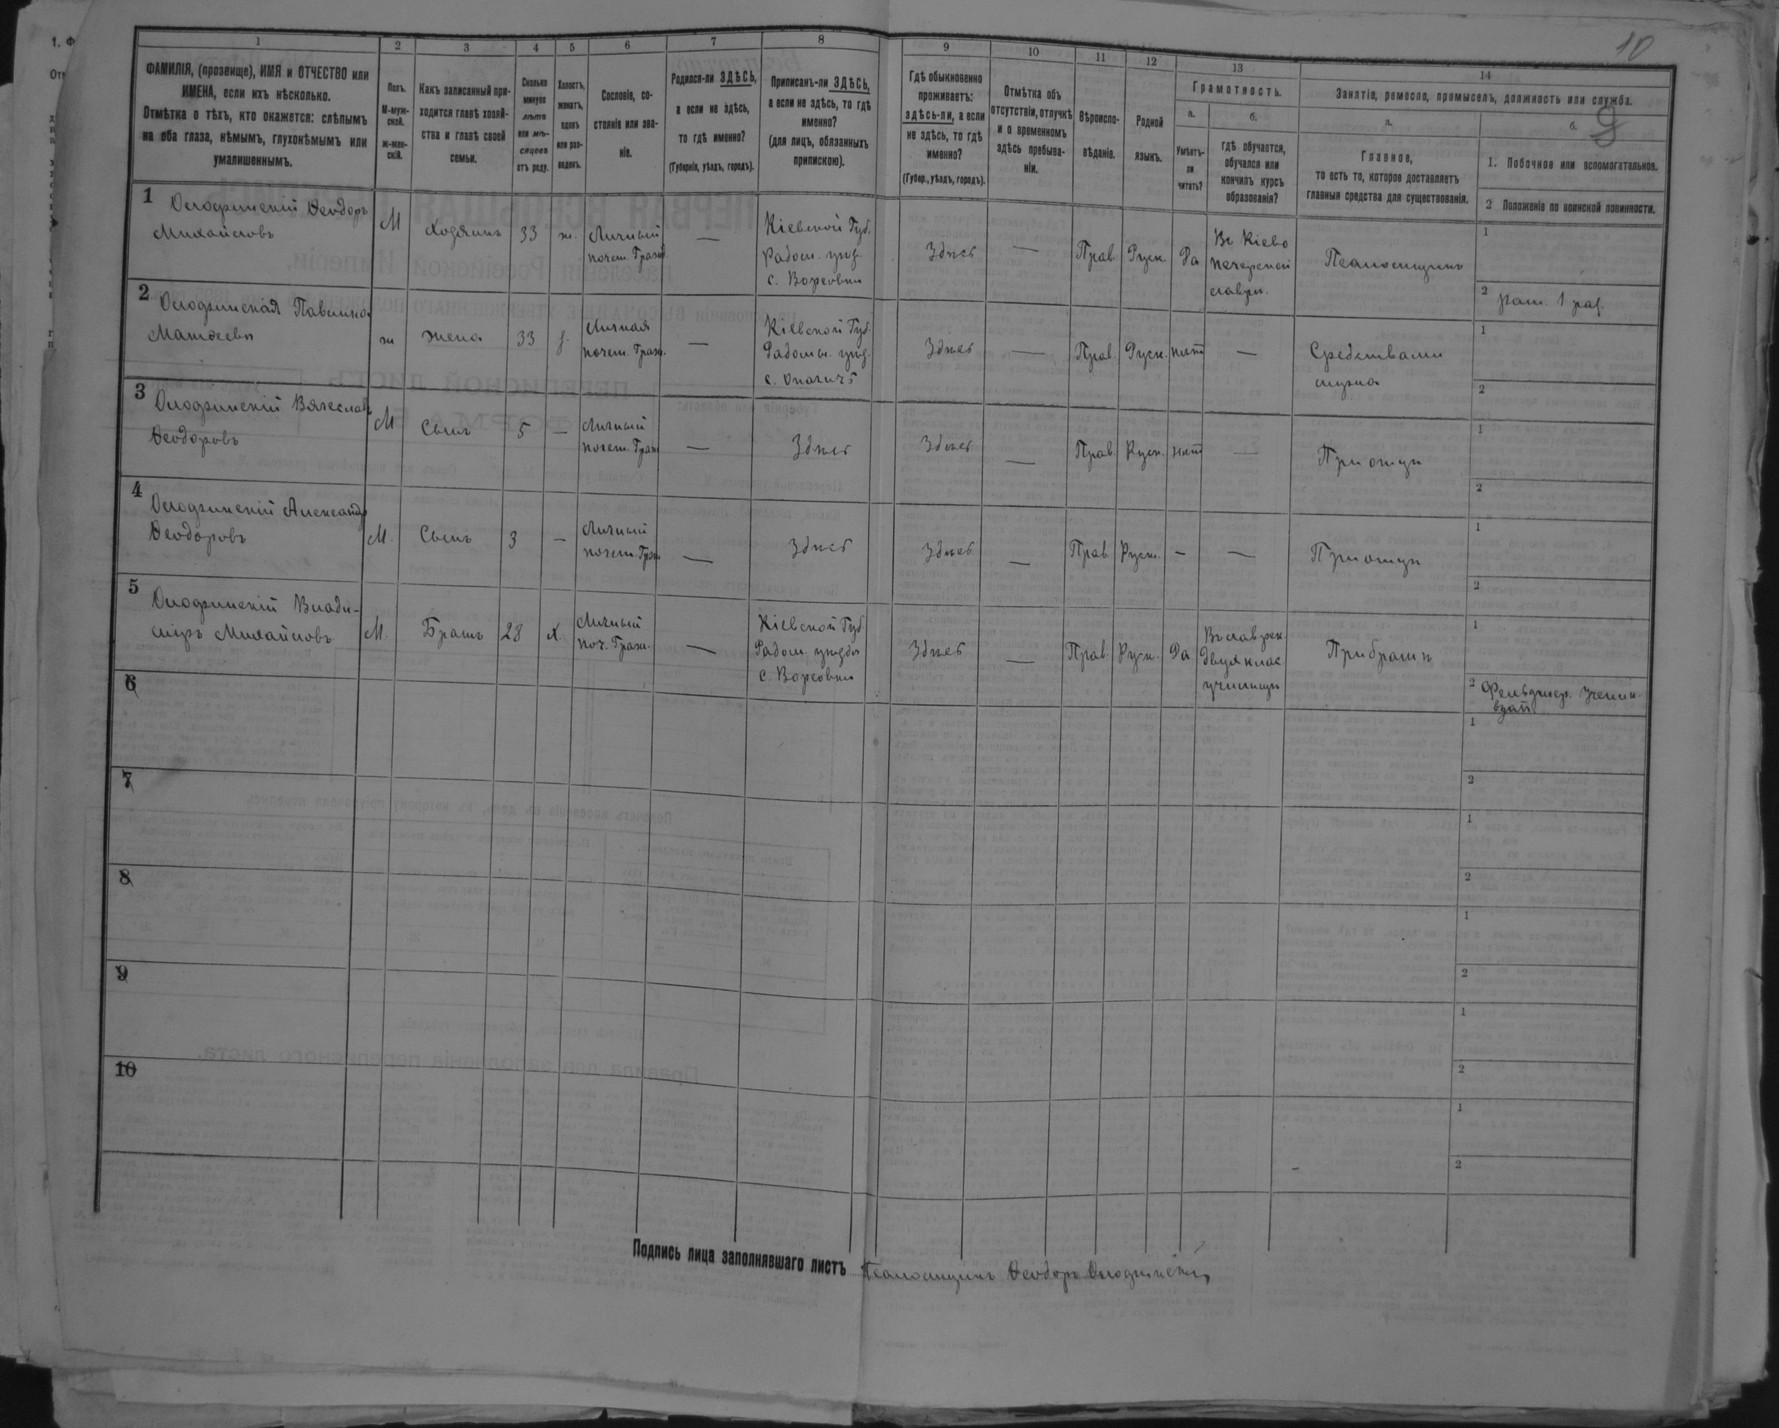 10
9
1 2 3 4 5 6 7 8 9 10 11 12 13 14
ФАМИЛІЯ, (прозвище), ИМЯ и ОТЧЕСТВО или
ИМЕНА, если ихъ нѣсколько.
Отмѣтка о тѣхъ, кто окажется: слѣпымъ
на оба глаза, нѣмымъ, глухонѣмымъ или
умалишеннымъ.
Полъ.
М-муж-
ской.
ж-жен-
скій.
Какъ записанный при-
ходится главѣ хозяй-
ства и главѣ своей
семьи.
Сколько
минуло
лѣтъ
или мѣ-
сяцевъ
отъ роду.
Холостъ,
женатъ,
вдовъ
или раз-
веденъ.
Сословіе, со-
стояніе или зва-
ніе.
Родился-ли ЗДѢСЬ,
а если не здѣсь,
то гдѣ именно?
(Губернія, уѣздъ, городъ).
Приписанъ-ли ЗДѢСЬ,
а если не здѣсь, то гдѣ
именно?
(для лицъ, обязанныхъ
припискою).
Гдѣ обыкновенно
проживаетъ:
здѣсь-ли, а если
не здѣсь, то гдѣ
именно?
(Губер., уѣздъ, городъ).
Отмѣтка объ
отсутствіи, отлучкѣ
и о временномъ
здѣсь пребыва-
ніи.
Вѣроиспо-
вѣданіе.
Родной
языкъ.
Грамотность.
а.
Умѣетъ-
ли
читать?
б.
гдѣ обучается,
обучался или
кончилъ курсъ
образованія?
Занятіе, ремесло, промыселъ, должность или служба.
а.
Главное,
то есть то, которое доставляетъ
главныя средства для существованія.
б.
1. Побочное или вспомогательное.
2 Положеніе по воинской повинности.
1
Ѳеодоръ
Михайловъ
М
Хозяинъ
33
ж.
Личный
почет. Граж.
—
Кіевской Губ.
Радом. уѣз.
с. Ворсовки
Здѣсь
—
Прав.
Русск.
Да
Въ Кіево
печерской
лаврѣ.
Псаломщикъ
1
2 рат. 1 раз.
2
Павлина
Матѳеева
ж
жена
33
з.
Личная
почет. Граж.
—
Кіевской Губ.
Радомы. уѣз.
Здѣсь
—
Прав.
Русск.
нѣтъ
—
Средствами
мужа
1
2
3
Вячеславъ
Ѳеодоровъ
М
Сынъ
5
—
Личный
почет. Граж.
—
Здѣсь
Здѣсь
—
Прав.
Русск.
нѣтъ
—
При отцѣ
1
2
4
Александръ
Ѳеодоровъ
М.
Сынъ
3
—
Личный
почет. Граж.
—
Здѣсь
Здѣсь
—
Прав.
Русск.
—
—
При отцѣ
1
2
5
Влади-
міръ Михайловъ
М.
Братъ
28
х.
Личный
поч. Граж.
—
Кіевской Губ
Радом. уѣзда
с. Ворсовки
Здѣсь
—
Прав.
Русск.
Да
двухклас
училищѣ
При братѣ
1
2
6
1
2
7
1
2
8
1
2
9
1
2
10
1
2
Подпись лица заполнявшаго листъ Псаломщикъ Ѳеодоръ